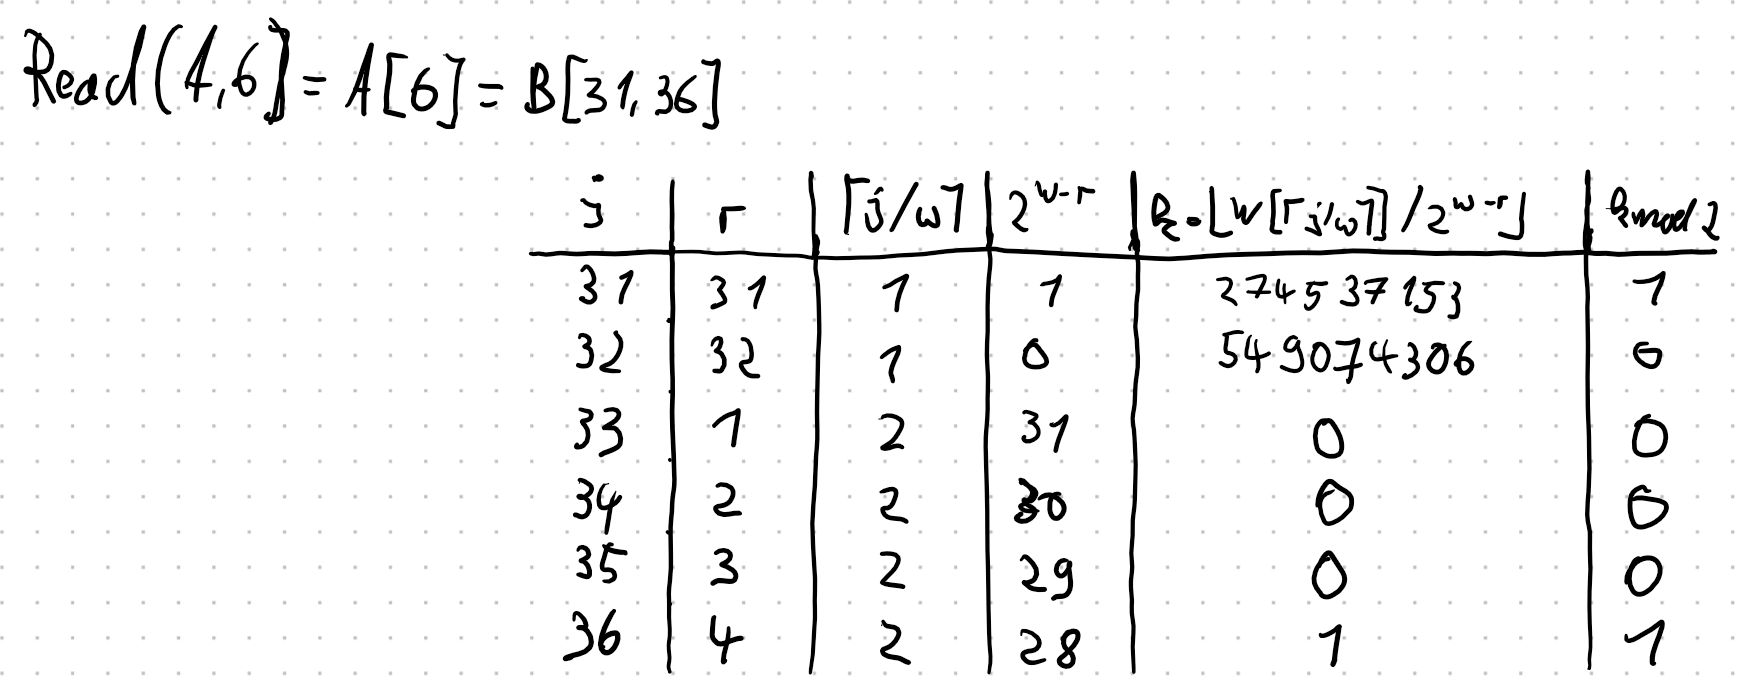 Read(A,6) = A[6] = B[31,36]
j r ⌈j/w⌉ 2^{w-r} k=⌊W[⌈j/w⌉]/2^{w-r}⌋ k mod 2
31 31 1 1 274537153 1
32 32 1 0 549074306 0
33 1 2 31 0 0
34 2 2 30 0 0
35 3 2 29 0 0
36 4 2 28 1 1